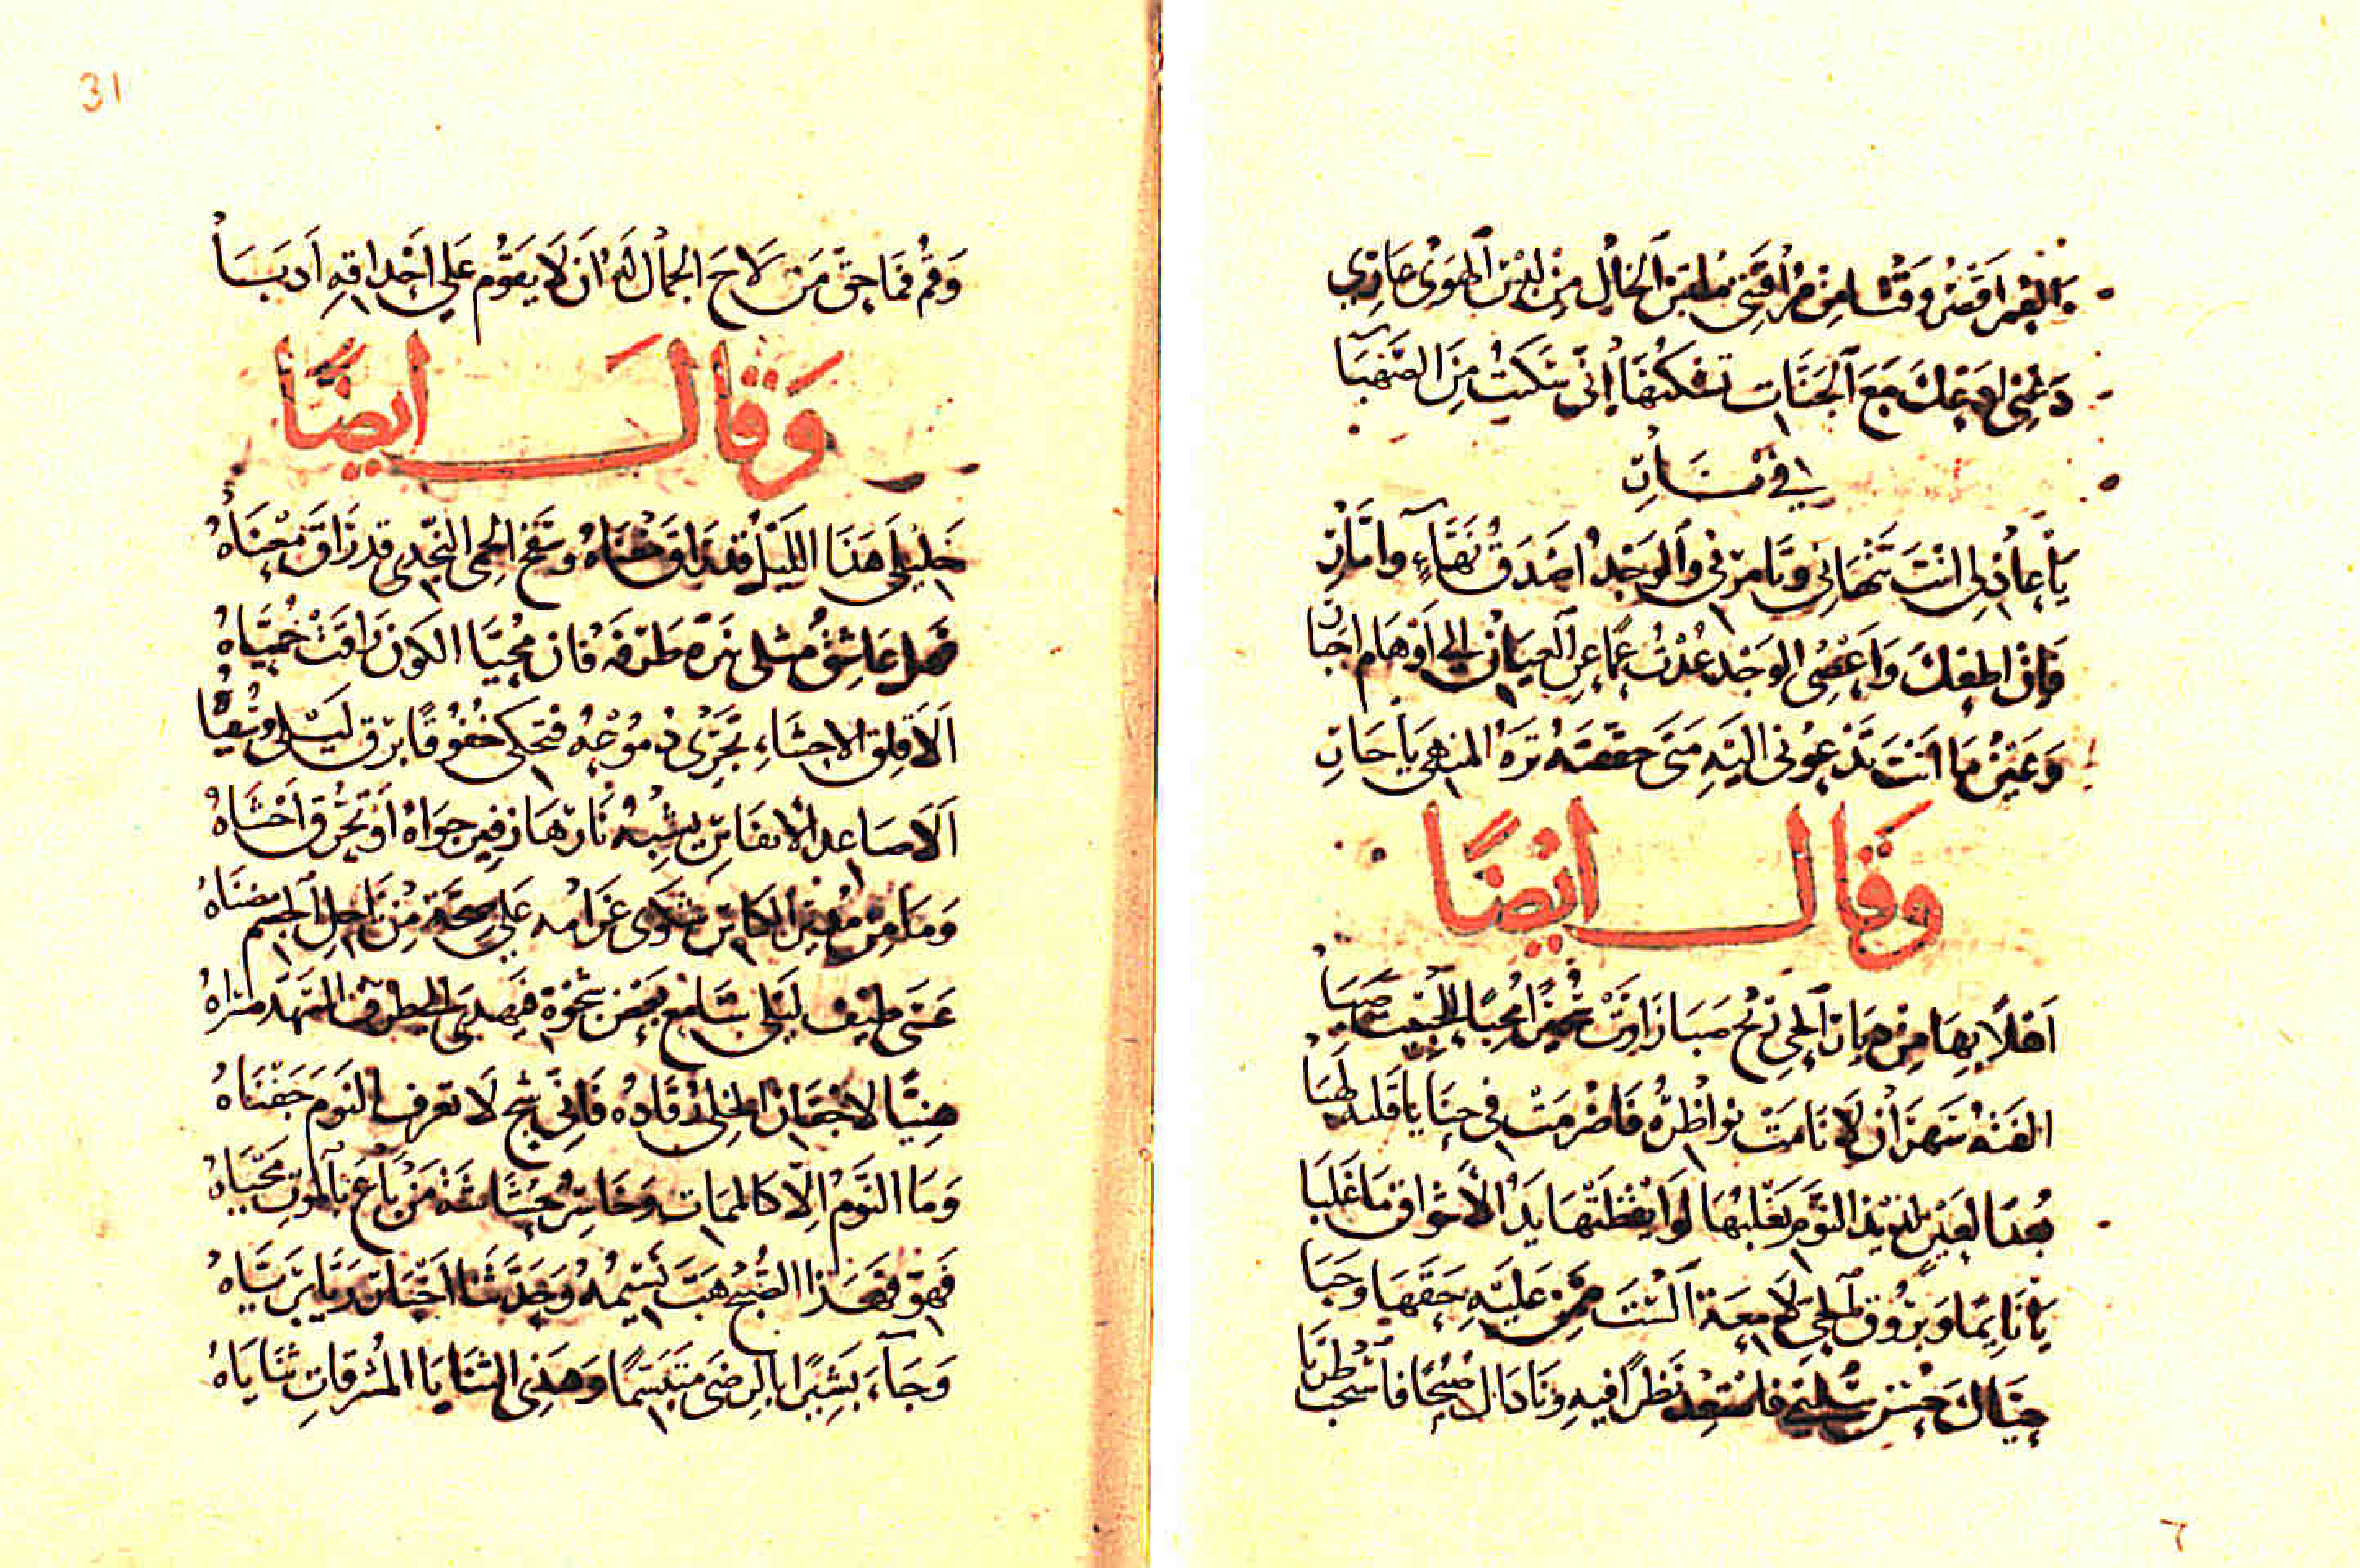 بالعمر اقصر وقتا من مرافقتى ملبس الخال من لبس الهوى عارى
دعنى لاجلك مع الجنات تسكنها انى سكيت من الصهبا
فى نسات
يا عاذلى انت تنهانى وتامرنى والوجد اصدق نهاء وامار
فان اطعك واعصى الوجد عدت عما عن العيان الى اوهام اجبان
وعين ما انت تدعونى اليه متى حققته تره المنهى يا حان
وقال ايضا
اهلا بها من هبات الحى ريح صبا زارت محبا الى حبيب صبا
الفته سهران لا نامت نواظره فاضرمت فى حنايا قلبه لهبا
بعدا لعين لذيذ النوم يغلبها لو ايقظتها يد الاشواق ما غلبا
يا نايما وبروق الحى لامعة الست ممن عليه حقها وجبا
حياك حسن سليمى فاستعد نظرا فيه ونادال صحا فاسحب طربا
6
31
وقم فما حق من لاح الجمال له ان لا يقوم على احداقه ادبا
وقال ايضا
خليلى هذا الليل قد راق حسناه وسفح الحمى النجدى قد راق معناه
فهل عاشق مثلى ينزه طرفه فان محيا الكون راقت حمياه
الا قلق الاحشاء تجرى دموعه فتحكى خفوقا برق ليلى وسقياه
الا صاعد الانفاس يشبه نارها زفير جواه او تحرق احشاه
وما من مدير الكاس شكوى غرامه على صحة من ناحل الجسم مضناه
عسى طيف ليلى سامع بعض شجوه فيهدى الى الطرف المسهد مراه
هنيا لاجفان الخلى رقاده فانى شج لا تعرف النوم جفناه
وما النوم الا كالممات وخاسر حشاشته من باع بالموت محياه
فهو فهذا الصبح هب نسيمه وحدثنا اخبار ريا بريّاه
وجاء بشيرا بالرضى متبسما وهذى الثنايا المشرقات ثناياه